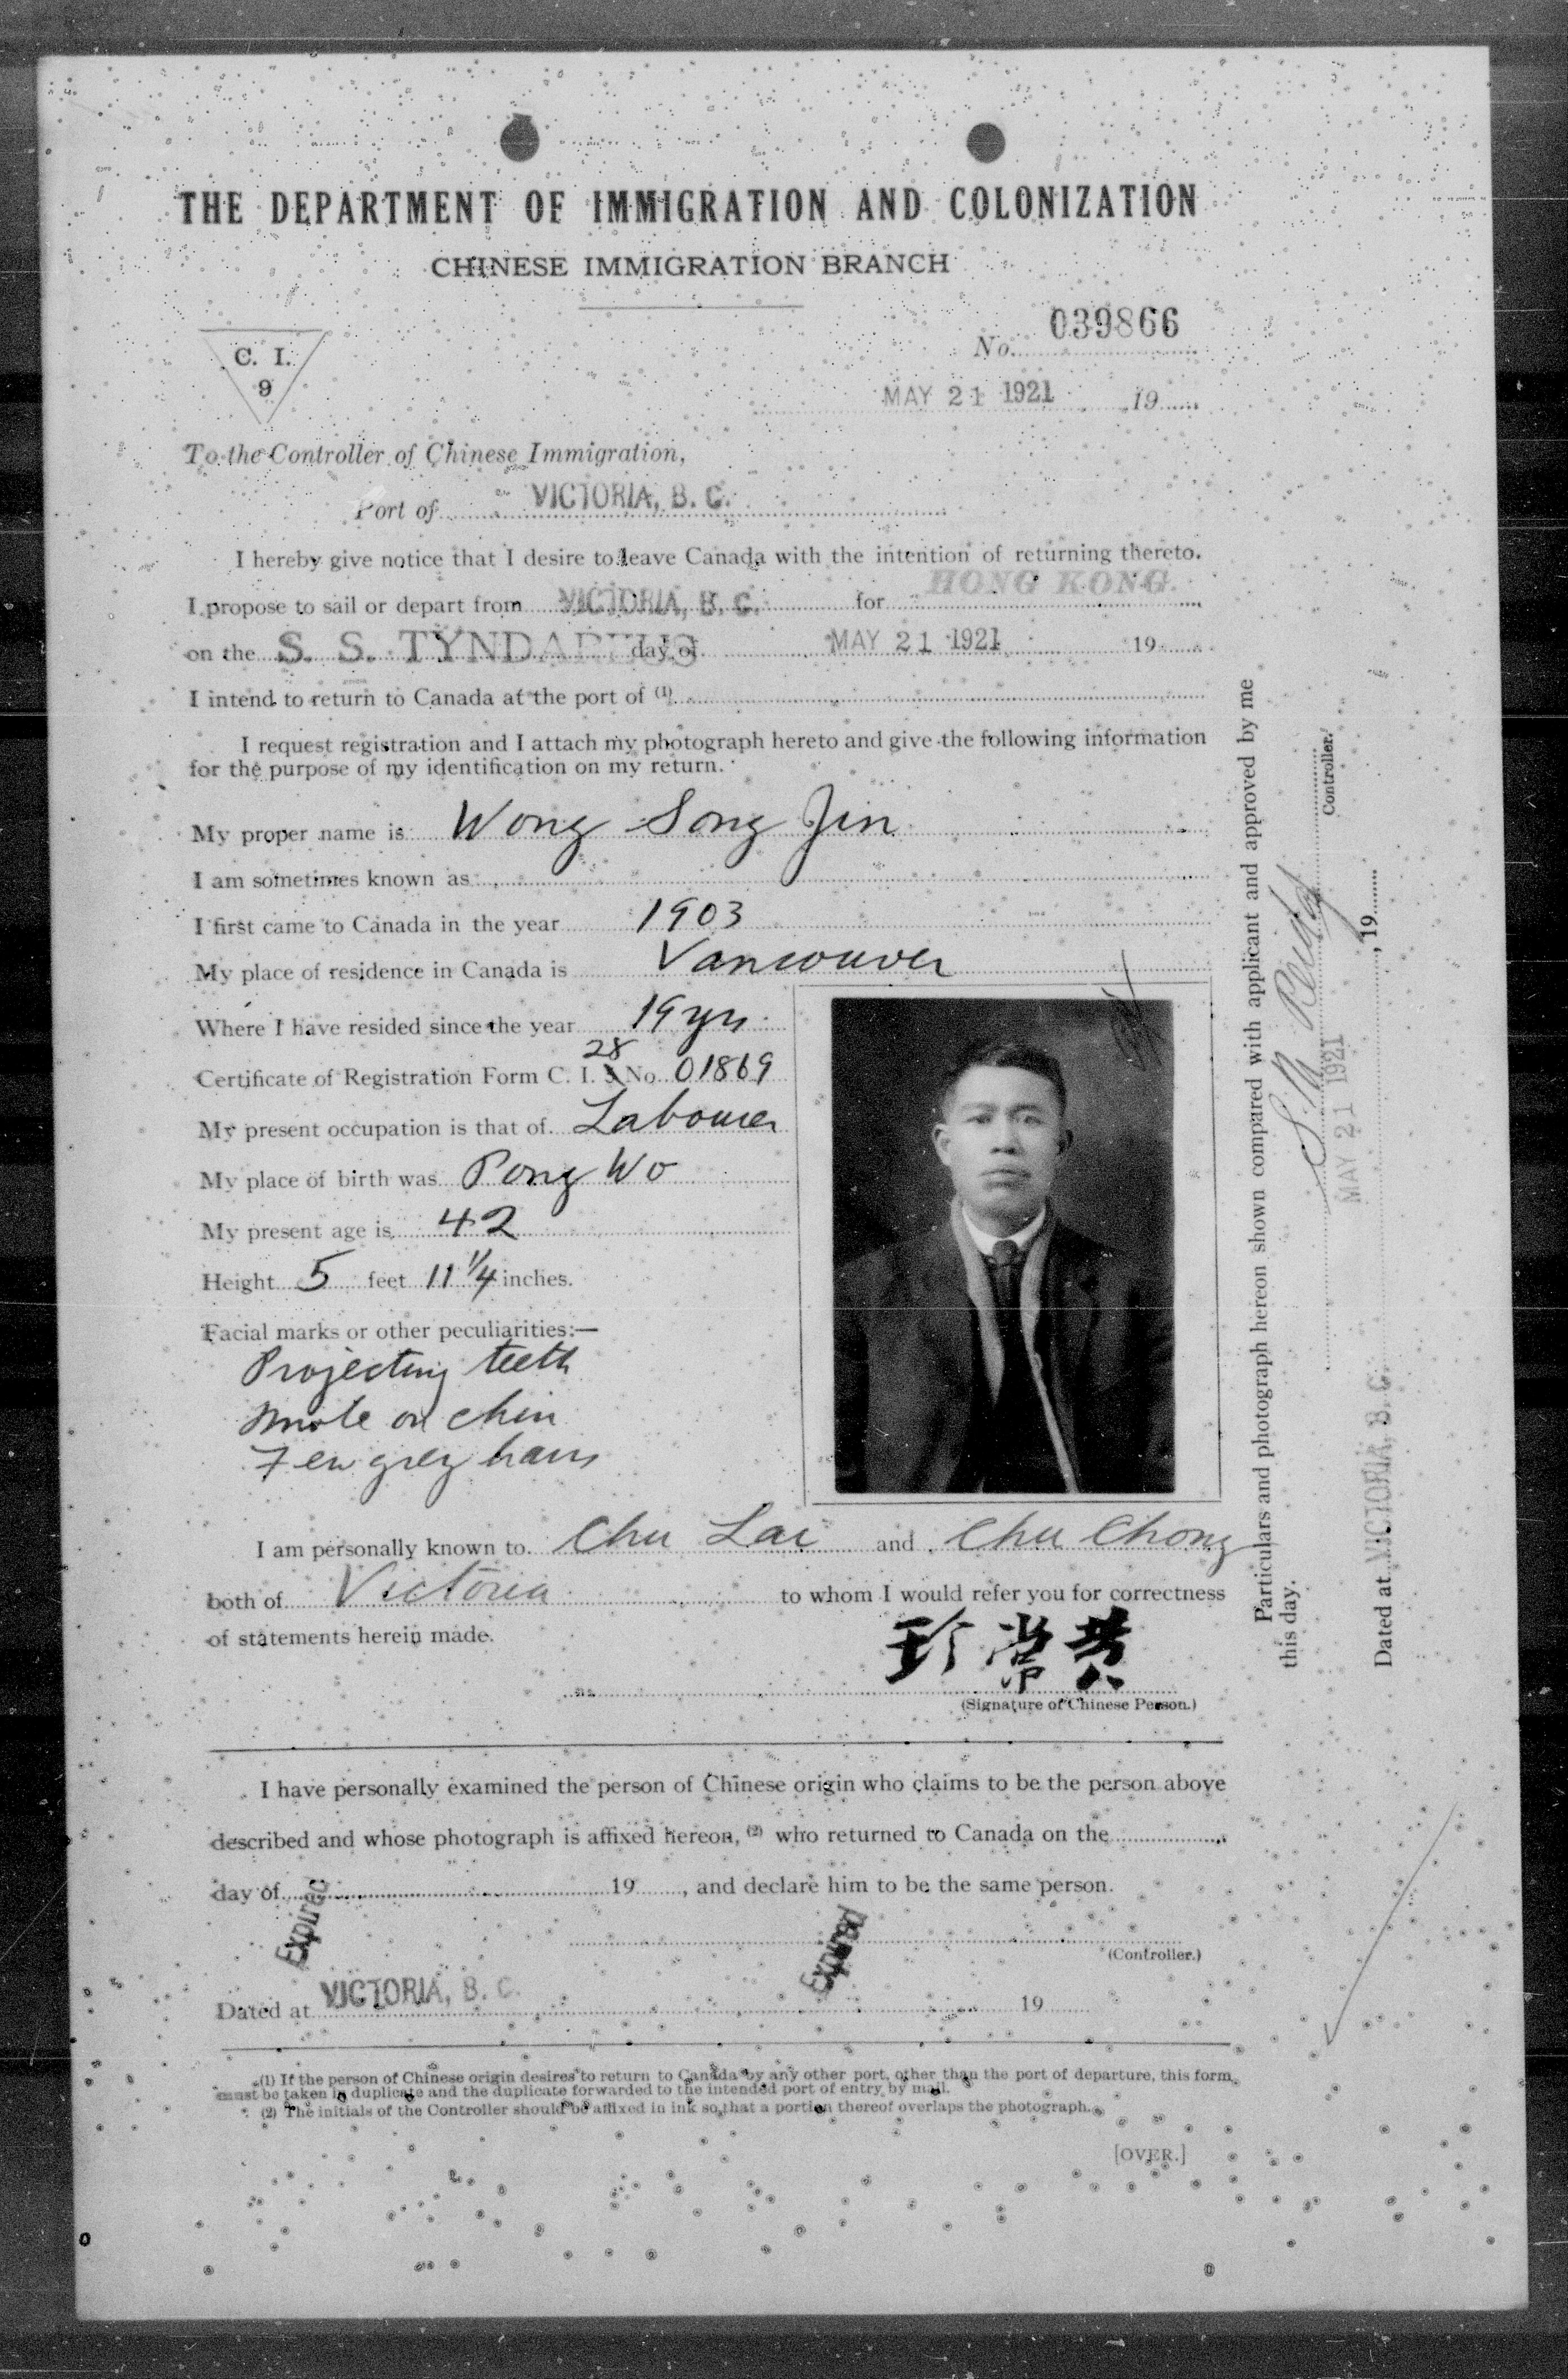 THE DEPARTMENT OF IMMIGRATION AND COLONIZATION
CHINESE IMMIGRATION BRANCH
C. I.
9
No. 039866
MAY 21 1921 19
To the Controller of Chinese Immigration,
Port of VICTORIA, B. C.
I hereby give notice that I desire to leave Canada with the intention of returning thereto.
I propose to sail or depart from VICTORIA, B. C. for HONG KONG.
on the S. S. TYNDAREUS day of MAY 21 1921 19
I intend to return to Canada at the port of (1)
I request registration and I attach my photograph hereto and give the following information
for the purpose of my identification on my return.
My proper name is Wong Song Jin
I am sometimes known as
I first came to Canada in the year 1903
My place of residence in Canada is Vancouver
Where I have resided since the year 19 yrs
28
Certificate of Registration Form C. I. 5 No. 01869
My present occupation is that of Labourer
My place of birth was Pong Wo
My present age is 42
Height 5 feet 11 1/4 inches.
Facial marks or other peculiarities:—
Projecting teeth
mole on chin
Few grey hairs
I am personally known to Chu Lai and Chu Chong
both of Victoria to whom I would refer you for correctness
of statements herein made.
珍常黄
(Signature of Chinese Person.)
I have personally examined the person of Chinese origin who claims to be the person above
described and whose photograph is affixed hereon, (2) who returned to Canada on the
day of 19 , and declare him to be the same person.
Expired
Expired
(Controller.)
Dated at VICTORIA, B. C. 19
(1) If the person of Chinese origin desires to return to Canada by any other port, other than the port of departure, this form
must be taken in duplicate and the duplicate forwarded to the intended port of entry by mail.
(2) The initials of the Controller should be affixed in ink so that a portion thereof overlaps the photograph.
[OVER.]
Particulars and photograph hereon shown compared with applicant and approved by me
this day.
Controller.
MAY 21 1921
Dated at VICTORIA, B. C. , 19